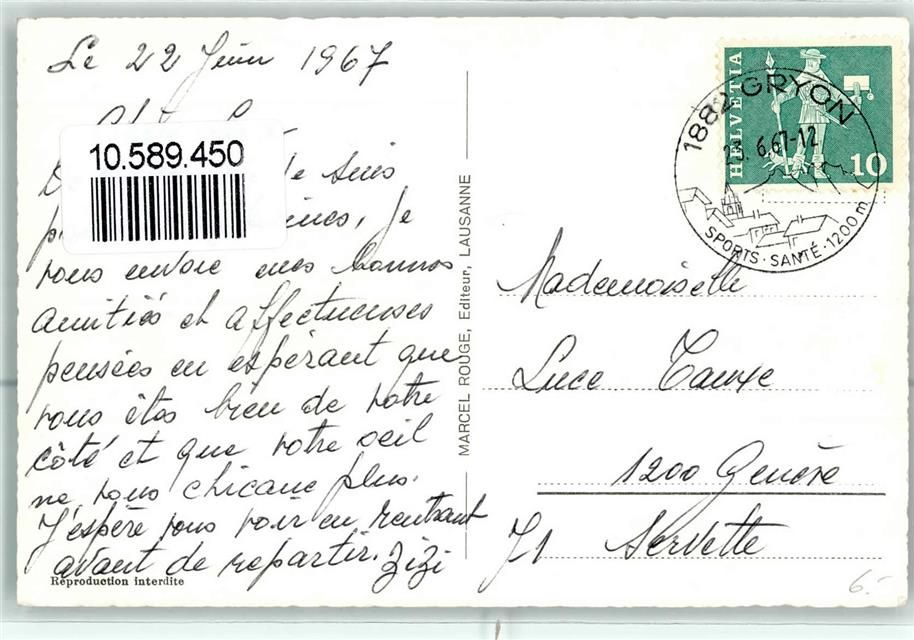 Le 22 Juin 1967
10.589.450
je suis
je
vous envoie mes bonnes
amitiés et affectueuses
pensées en espérant que
vous êtes bien de votre
côté et que votre oeil
ne vous chicane plus.
J'espère vous voir en rentrant
avant de repartir. Zizi
Reproduction interdite
MARCEL ROUGE, Editeur, LAUSANNE
HELVETIA
10
1882 GRYON
23. 6.67-12
SPORTS · SANTÉ · 1200 m
Mademoiselle
Luce
1200 Genève
Servette
6.-